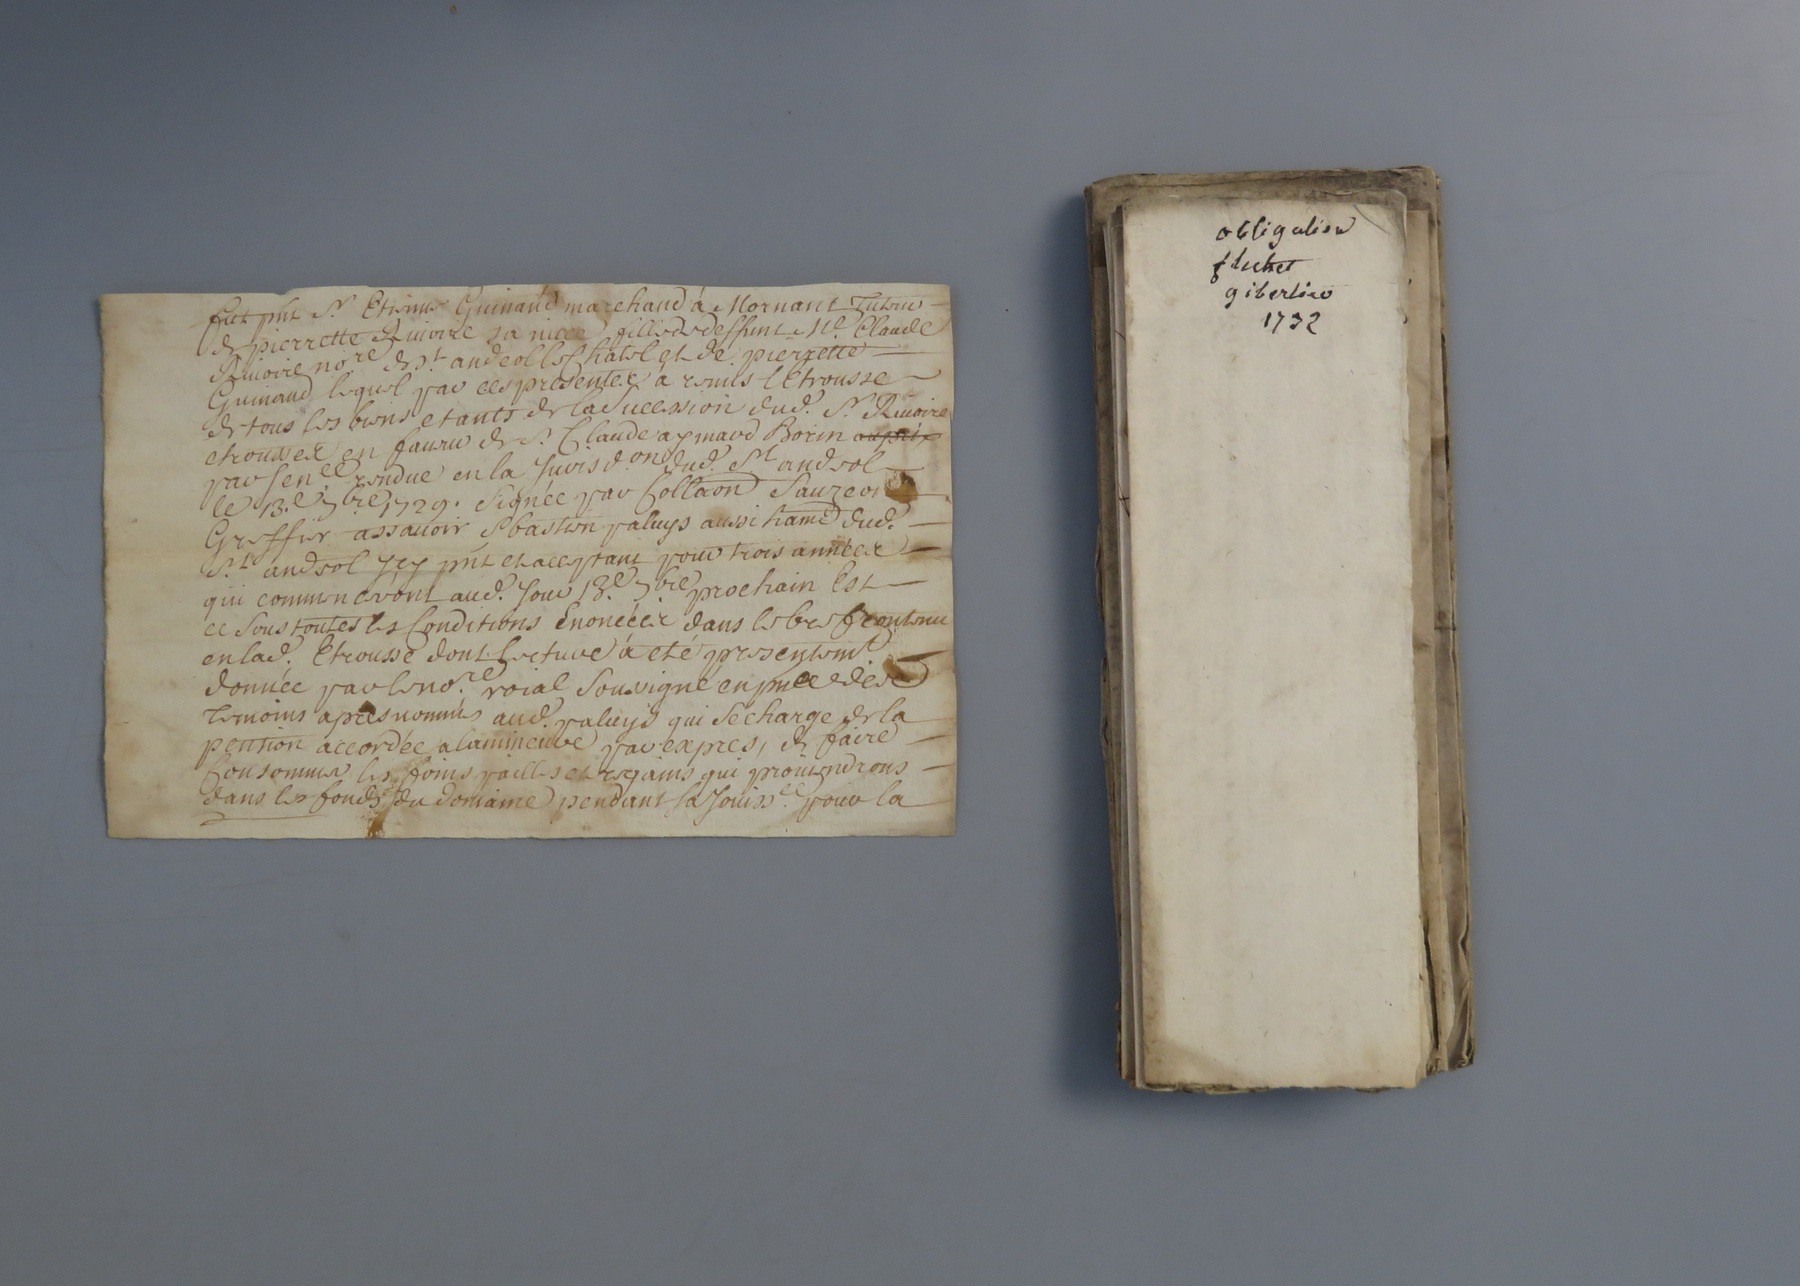 fut pnt Sr. Etienne Guinand marchand à Mornant Tuteur
de pierrette Rivoire sa niece fille de deffunt Me. Claude
Rivoire nore. de St. andeol le Chatel et de pierrette
Guinand lequel par ces presentes à remis l'Etrousse
de tous les biens etants de la Sucession dud. Sr. Rivoire
etroussee en faveur de Sr. Claude aymard Borin
par Senee. rendue en la Jurisd.on dud. St andeol
le 13.e 7bre 1729. Signée par Collaon Sauzeon
Greffier assavoir Sbastien paluys aussi hamt dud.
St. andeol Icy pnt et aceptant pour trois années
qui commenceront aud. Jour 13.e 7bre prochain Est
ce Sous toutes les Conditions Enoncées dans le bref contenu
en lad. Etrousse dont lecture à eté presentemt
donnée par le nore. roial Soussigné en pnce des
temoins apres nommés aud. paluys qui Se charge de la
pention accordée a la mineure par expres, de faire
Consommer les foins pailles et regains qui proviendrons
dans les fonds du domaine pendant sa Jouissce. pour la
obligation
fluchet
gibertier
1732